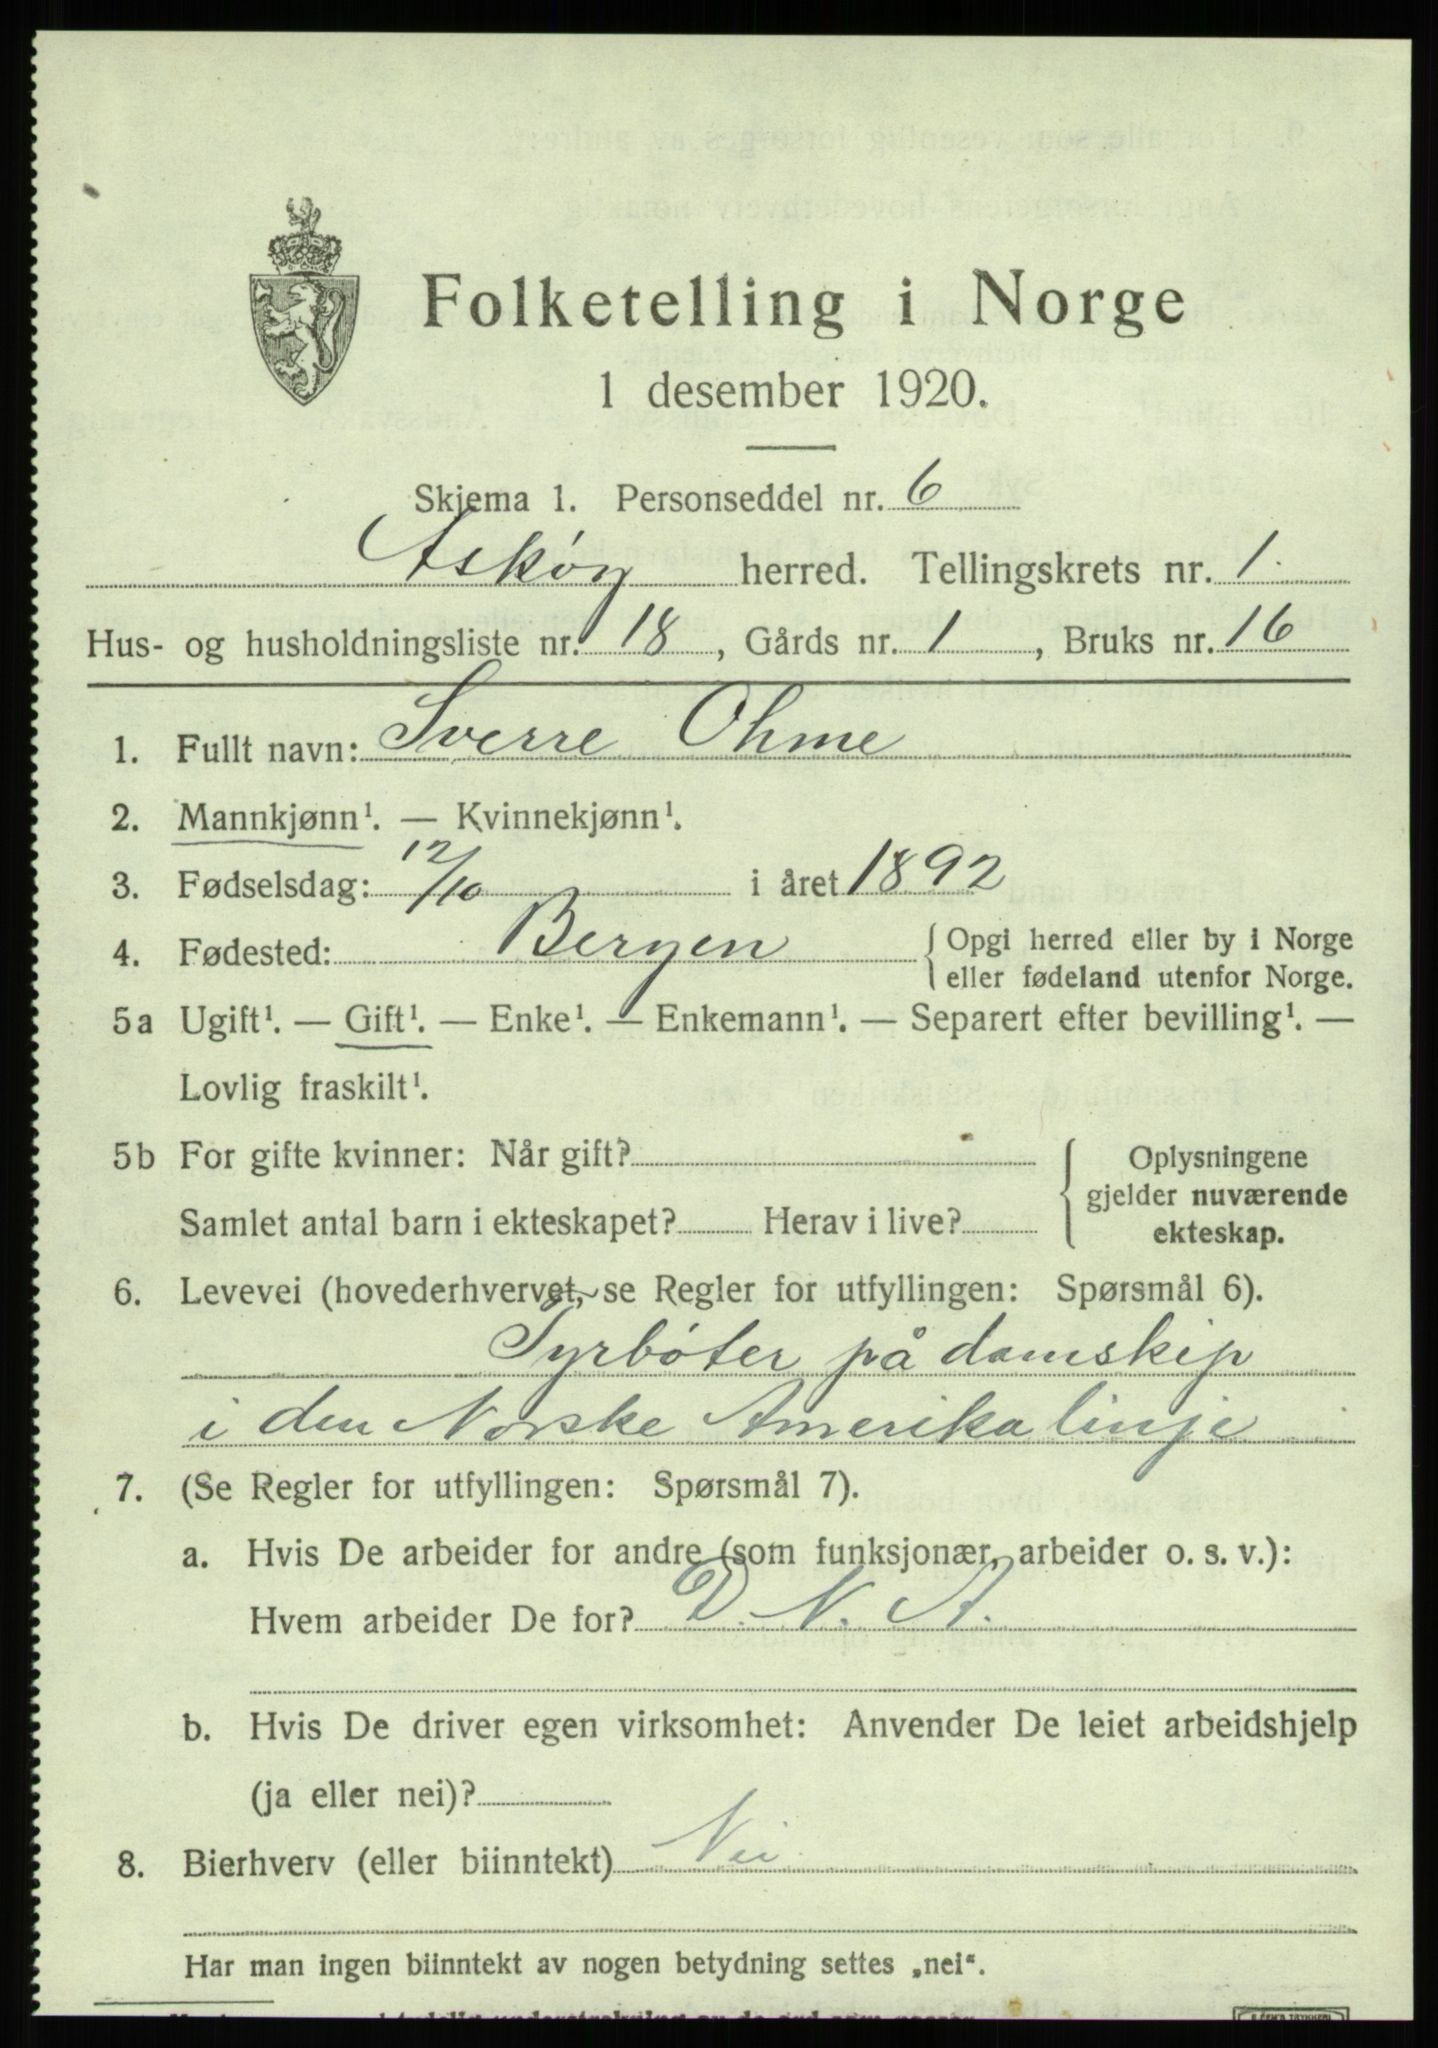 Folketelling i Norge
1 desember 1920.
Skjema 1. Personseddel nr. 6
Askøy herred. Tellingskrets nr. 1.
Hus- og husholdningsliste nr. 18, Gårds nr. 1, Bruks nr. 16
1. Fullt navn: Sverre Ohme
2. Mannkjønn¹. — Kvinnekjønn¹.
3. Fødselsdag: 12/10 i året 1892
4. Fødested: Bergen { Opgi herred eller by i Norge
eller fødeland utenfor Norge.
5a Ugift¹. — Gift¹. — Enke¹. — Enkemann¹. — Separert efter bevilling¹. —
Lovlig fraskilt¹.
5b For gifte kvinner: Når gift?
Samlet antal barn i ekteskapet? Herav i live?
{ Oplysningene
gjelder nuværende
ekteskap.
6. Levevei (hovederhvervet, se Regler for utfyllingen: Spørsmål 6).
Fyrböter på damskip
i den Norske Amerika linje
7. (Se Regler for utfyllingen: Spørsmål 7).
a. Hvis De arbeider for andre (som funksjonær, arbeider o. s. v.):
Hvem arbeider De for? D. N. A.
b. Hvis De driver egen virksomhet: Anvender De leiet arbeidshjelp
(ja eller nei)?
8. Bierhverv (eller biinntekt) Nei
Har man ingen biinntekt av nogen betydning settes „nei“.